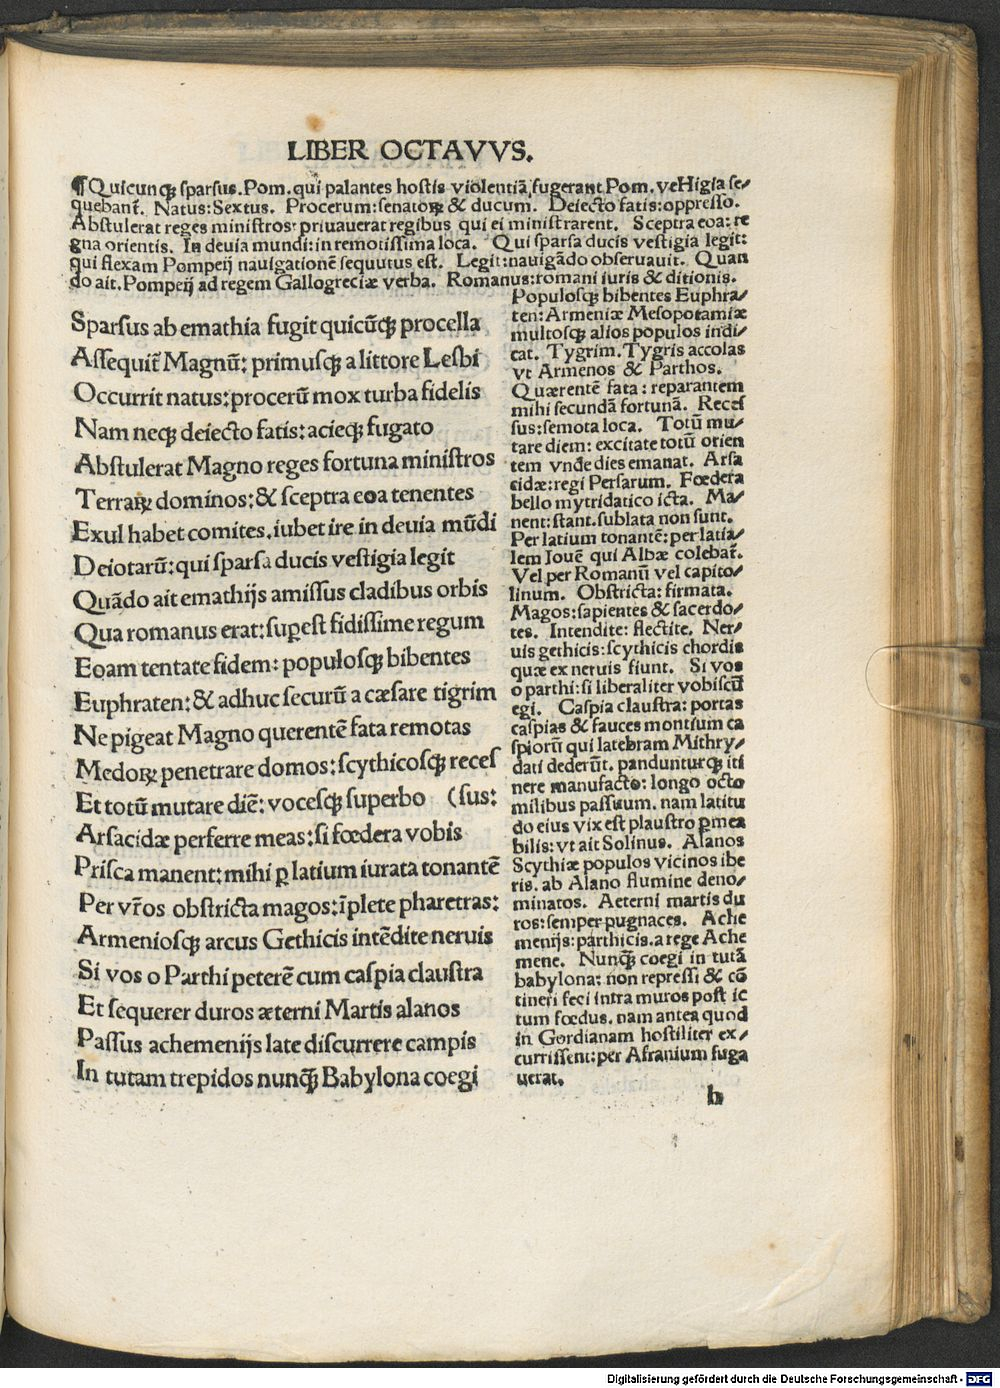 LIBER OCTAVVS.
¶Quicunqꝫ sparsus. Pom. qui palantes hostis violentiā fugerant Pom. veHigia se⸗
quebant᷑. Natus: Sextus. Procerum: senatoꝝ & ducum. Deiecto fatis: oppresso.
Abstulerat reges ministros: priuauerat regibus qui ei ministrarent. Sceptra eoa: re
gna orientis. In deuia mundi: in remotissima loca. Qui sparsa ducis vestigia legit:
qui flexam Pompeij nauigationē sequutus est. Legit: nauigādo obseruauit. Quan
do ait. Pompeij ad regem Gallogreciæ verba. Romanus: romani iuris & ditionis.
Sparsus ab emathia fugit quicūqꝫ procella
Assequit᷑ Magnū: primusqꝫ a littore Lesbi
Occurrit natus: procerū mox turba fidelis
Nam neqꝫ deiecto fatis: acieqꝫ fugato
Abstulerat Magno reges fortuna ministros
Terraꝝ dominos: & sceptra eoa tenentes
Exul habet comites. iubet ire in deuia mūdi
Deiotarū: qui sparsa ducis vestigia legit
Quādo ait emathijs amissus cladibus orbis
Qua romanus erat: suꝑest fidissime regum
Eoam tentate fidem: populosqꝫ bibentes
Euphraten: & adhuc securū a cæsare tigrim
Ne pigeat Magno querentē fata remotas
Medoꝝ penetrare domos: scythicosqꝫ reces
Et totū mutare diē: vocesqꝫ superbo (sus:
Arsacidæ perferre meas: si fœdera vobis
Prisca manent: mihi ꝑ latium iurata tonantē
Per vr̄os obstricta magos: īplete pharetras:
Armeniosqꝫ arcus Gethicis intēdite neruis
Si vos o Parthi peterē cum caspia claustra
Et sequerer duros æterni Martis alanos
Passus achemenijs late discurrere campis
In tutam trepidos nunqꝫ̄ Babylona coegi
Populosqꝫ bibentes Euphra⸗
ten: Armeniæ Mesopotamiæ
multosqꝫ alios populos indi⸗
cat. Tygrim. Tygris accolas
vt Armenos & Parthos.
Quærentē fata: reparantem
mihi secundā fortunā. Reces
sus: semota loca. Totū mu⸗
tare diem: excitate totū orien
tem vnde dies emanat. Arsa
cidæ: regi Persarum. Fœdera
bello mytridatico icta. Ma⸗
nent: stant. sublata non sunt.
Per latium tonantē: per latia⸗
lem Iouē qui Albæ colebat᷑.
Vel per Romanū vel capito⸗
linum. Obstricta: firmata.
Magos: sapientes & sacerdo⸗
tes. Intendite: flectite. Ner⸗
uis gethicis: scythicis chordis
quæ ex neruis fiunt. Si vos
o parthi: si liberaliter vobiscū
egi. Caspia claustra: portas
caspias & fauces montium ca
spiorū qui latebram Mithry⸗
dati dederūt. pandunturqꝫ iti
nere manufacto: longo octo
milibus passuum. nam latitu
do eius vix est plaustro ꝑmea
bilis: vt ait Solinus. Alanos
Scythiæ populos vicinos ibe
ris. ab Alano flumine deno⸗
minatos. Aeterni martis du
ros: semper pugnaces. Ache
menijs: parthicis. a rege Ache
mene. Nunqꝫ̄ coegi in tutā
babylona: non repressi & cō
tineri feci intra muros post ic
tum fœdus. nam antea quod
in Gordianam hostiliter ex⸗
currissent: per Afranium fuga
uerat.
h
Digitalisierung gefördert durch die Deutsche Forschungsgemeinschaft - DFG